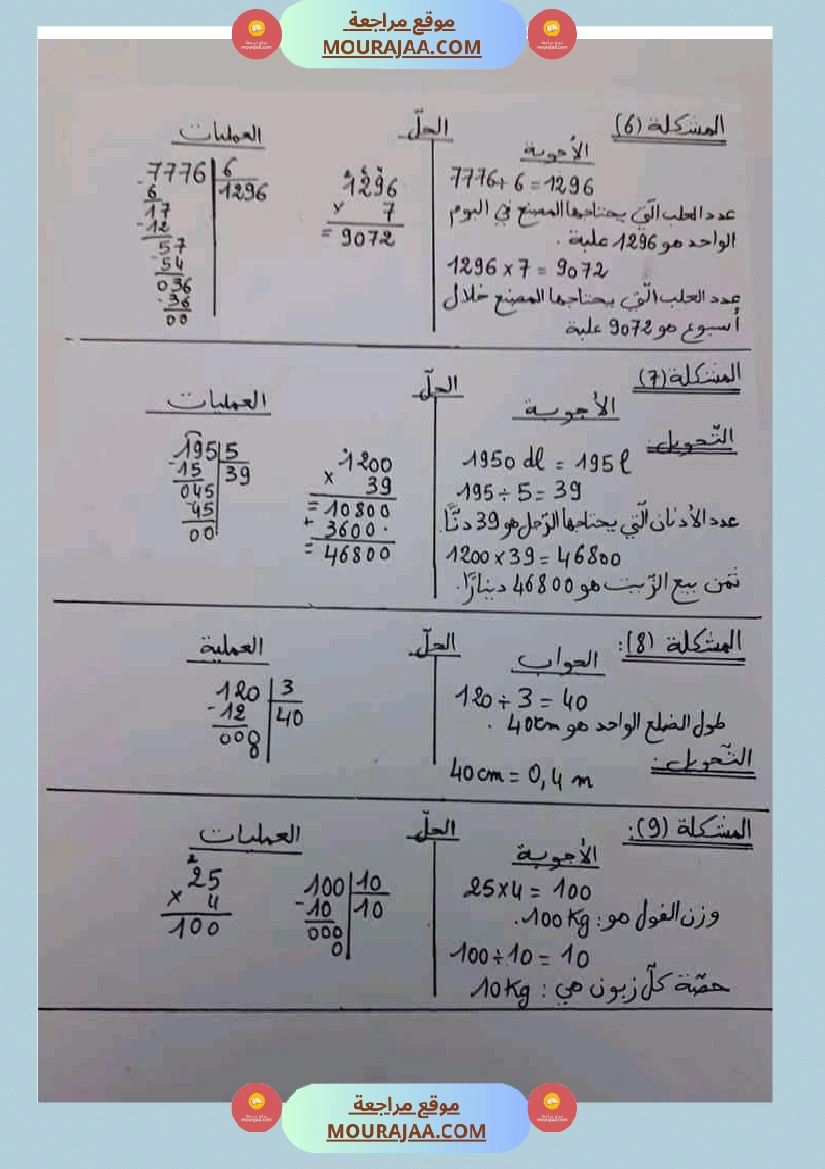 موقع مراجعة
MOURAJAA.COM
المشكلة (6)
الحلّ
العمليات
الأجوبة
7776÷6=1296
عدد العلب الّتي يحتاجها المصنع في اليوم
الواحد هو 1296 علبة.
1296×7=9072
عدد العلب الّتي يحتاجها المصنع خلال
أسبوع هو 9072 علبة
1296
× 7
= 9072
7776 | 6
1296
- 6
17
- 12
57
- 54
036
- 36
00
المشكلة (7)
الحلّ
العمليات
الأجوبة
التّحويل:
1950 dl = 195 l
195÷5=39
عدد الأدنان الّتي يحتاجها الرّجل هو 39 دنًّا.
1200×39=46800
ثمن بيع الزّيت هو 46800 دينارًا.
1200
× 39
= 10800
+ 3600·
= 46800
195 | 5
39
- 15
045
- 45
00
المشكلة (8):
الحلّ
العملية
الجواب
120÷3=40
طول الضلع الواحد هو 40cm.
التّحويل:
40cm = 0,4 m
120 | 3
40
- 12
000
المشكلة (9):
الحلّ
العمليات
الأجوبة
25×4=100
وزن الفول هو: 100Kg.
100÷10=10
حصّة كلّ زبون هي: 10Kg
100 | 10
10
- 10
000
0
2
25
× 4
100
موقع مراجعة
MOURAJAA.COM